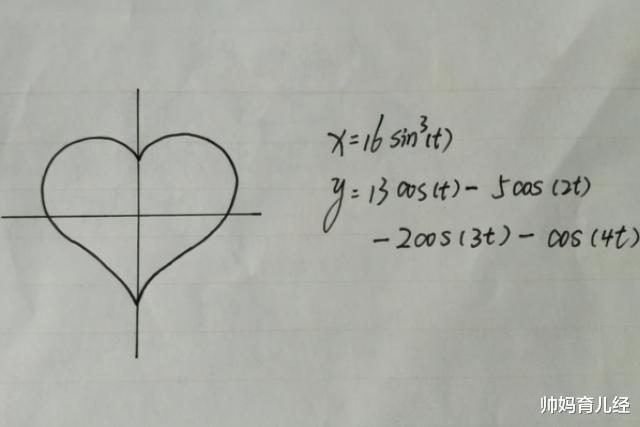 x=16 sin³(t)
y=13 cos(t) - 5cos(2t)
-2cos(3t) - cos(4t)
帅妈育儿经